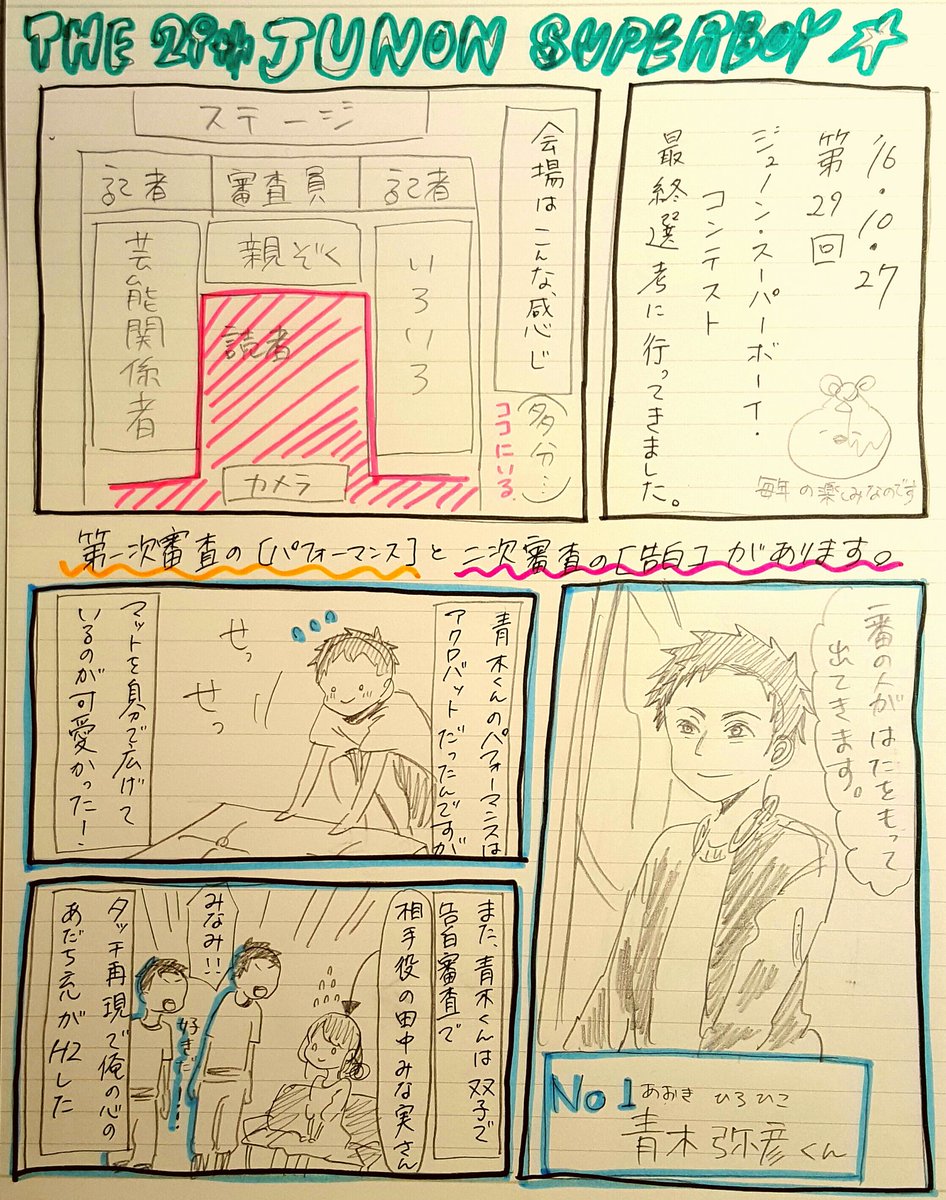 THE 29th JUNON SUPERBOY
'16.10.27
第29回
ジュノン・スーパーボーイ・
コンテスト
最終選考に行ってきました。
毎年の楽しみなのです
会場はこんな感じ
(多分…)
ココにいる
ステージ
記者
審査員
記者
親ぞく
いろいろ
読者
芸能関係者
カメラ
第一次審査の[パフォーマンス]と二次審査の[告白]があります。
一番の人がはたをもって
出てきます。
No1
あおき ひろひこ
青木弥彦くん
青木くんのパフォーマンスは
アクロバットだったんですが
せっ
せっ
マットを自分で広げて
いるのが可愛かった!
また、青木くんは双子で
告白審査で
相手役の田中みな実さん
みなみ!!
好きだ
タッチ再現で俺の心の
あだち充がH2した